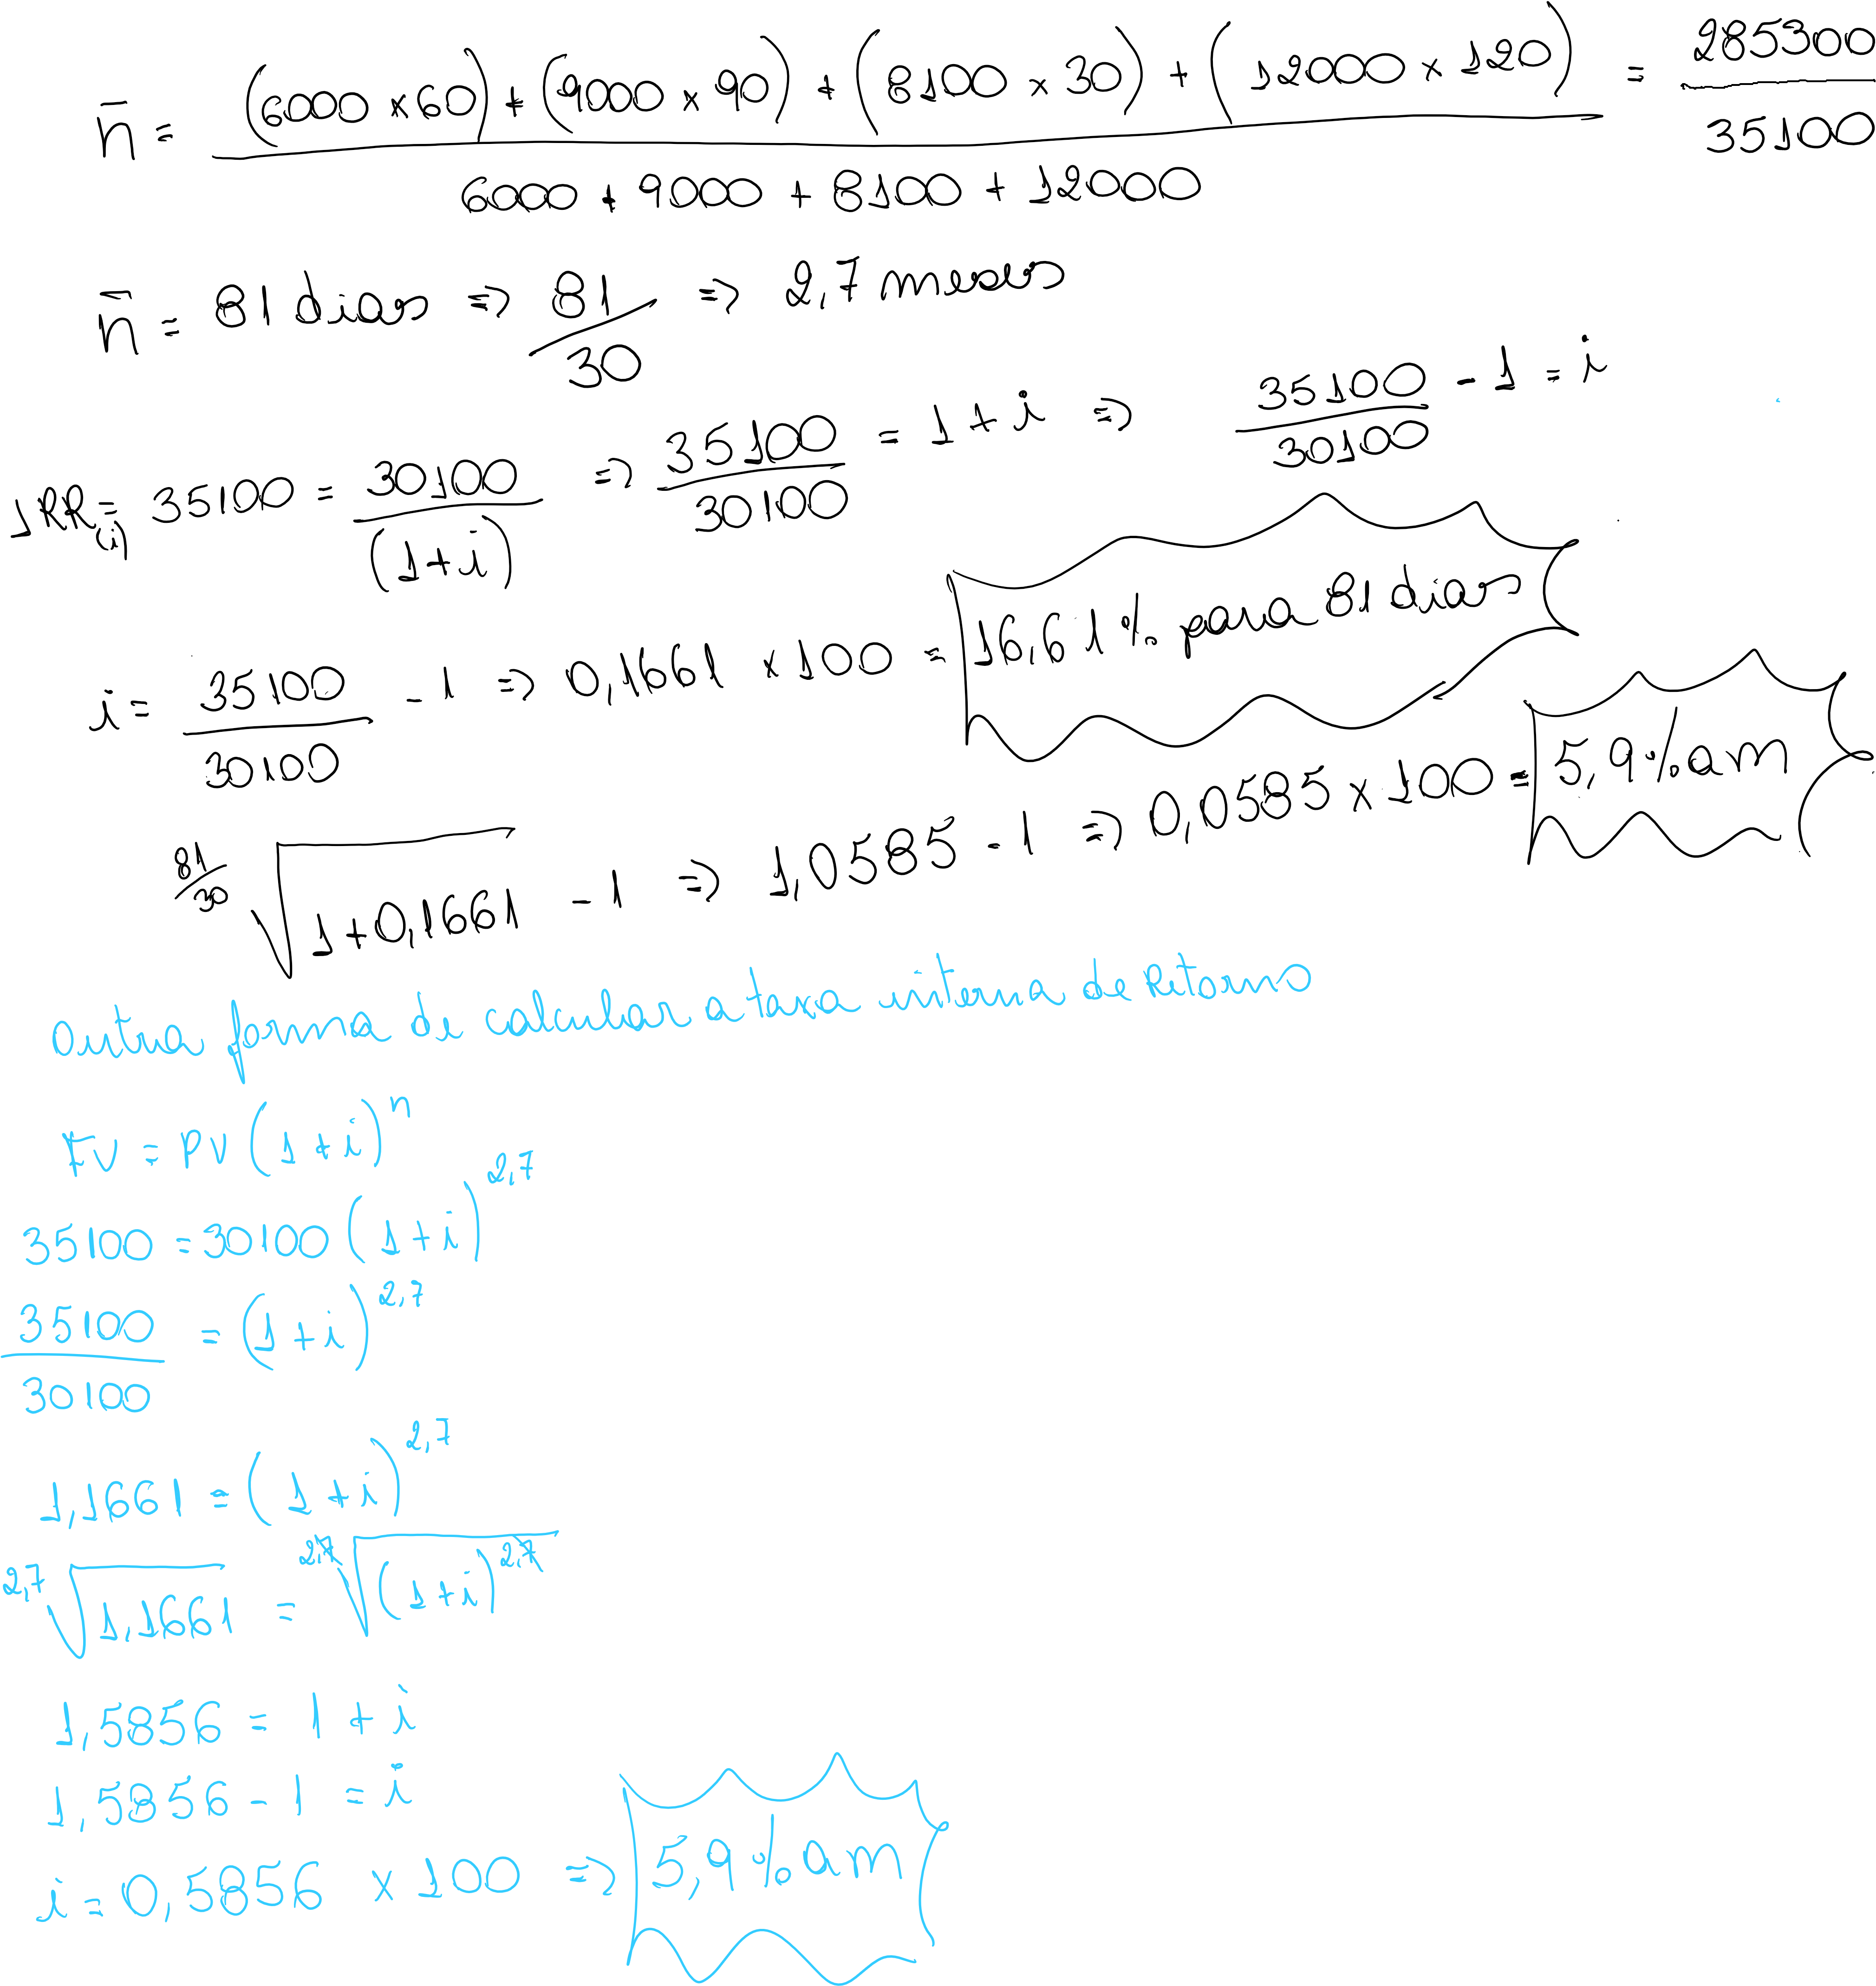 n̄ = (6000 x 60) + (9000 x 90) + (8100 x 30) + (12000 x 120) = 2853000
6000 + 9000 + 8100 + 12000
35100
n̄ = 81 dias => 81/30 => 2,7 meses
IRR(i) = 35100 = 30100/(1+i) => 35100/30100 = 1 + i => 35100/30100 - 1 = i
i = 35100/30100 - 1 => 0,1661 x 100 = 16,61% para 81 dias
81/30 √1+0,1661 - 1 => 1,0585 - 1 => 0,0585 x 100 = 5,9% am
outra forma de calcular a taxa interna de retorno
FV = PV (1+i)^n
35100 = 30100 (1+i)^2,7
35100/30100 = (1+i)^2,7
1,1661 = (1+i)^2,7
2,7 √1,1661 = 2,7 √(1+i)^2,7
1,5856 = 1 + i
1,5856 - 1 = i
i = 0,5856 x 100 => 5,9% am